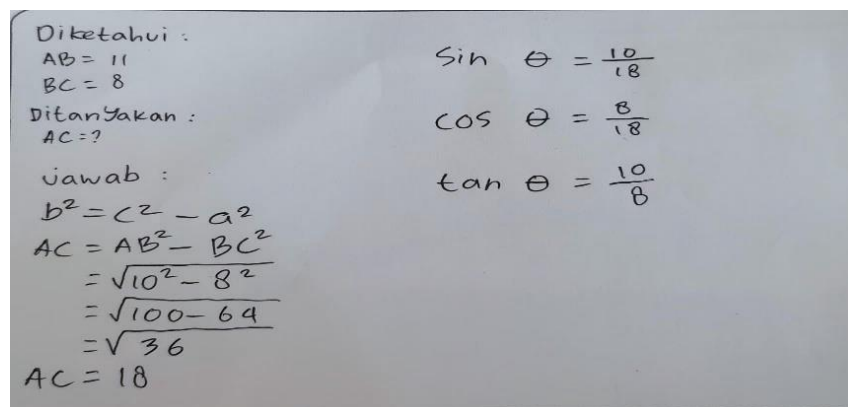 Diketahui :
AB = 11
BC = 8
Ditanyakan :
AC = ?
Jawab :
b² = c² - a²
AC = AB² - BC²
= √10² - 8²
= √100 - 64
= √36
AC = 18
Sin θ = 10/18
cos θ = 8/18
tan θ = 10/8